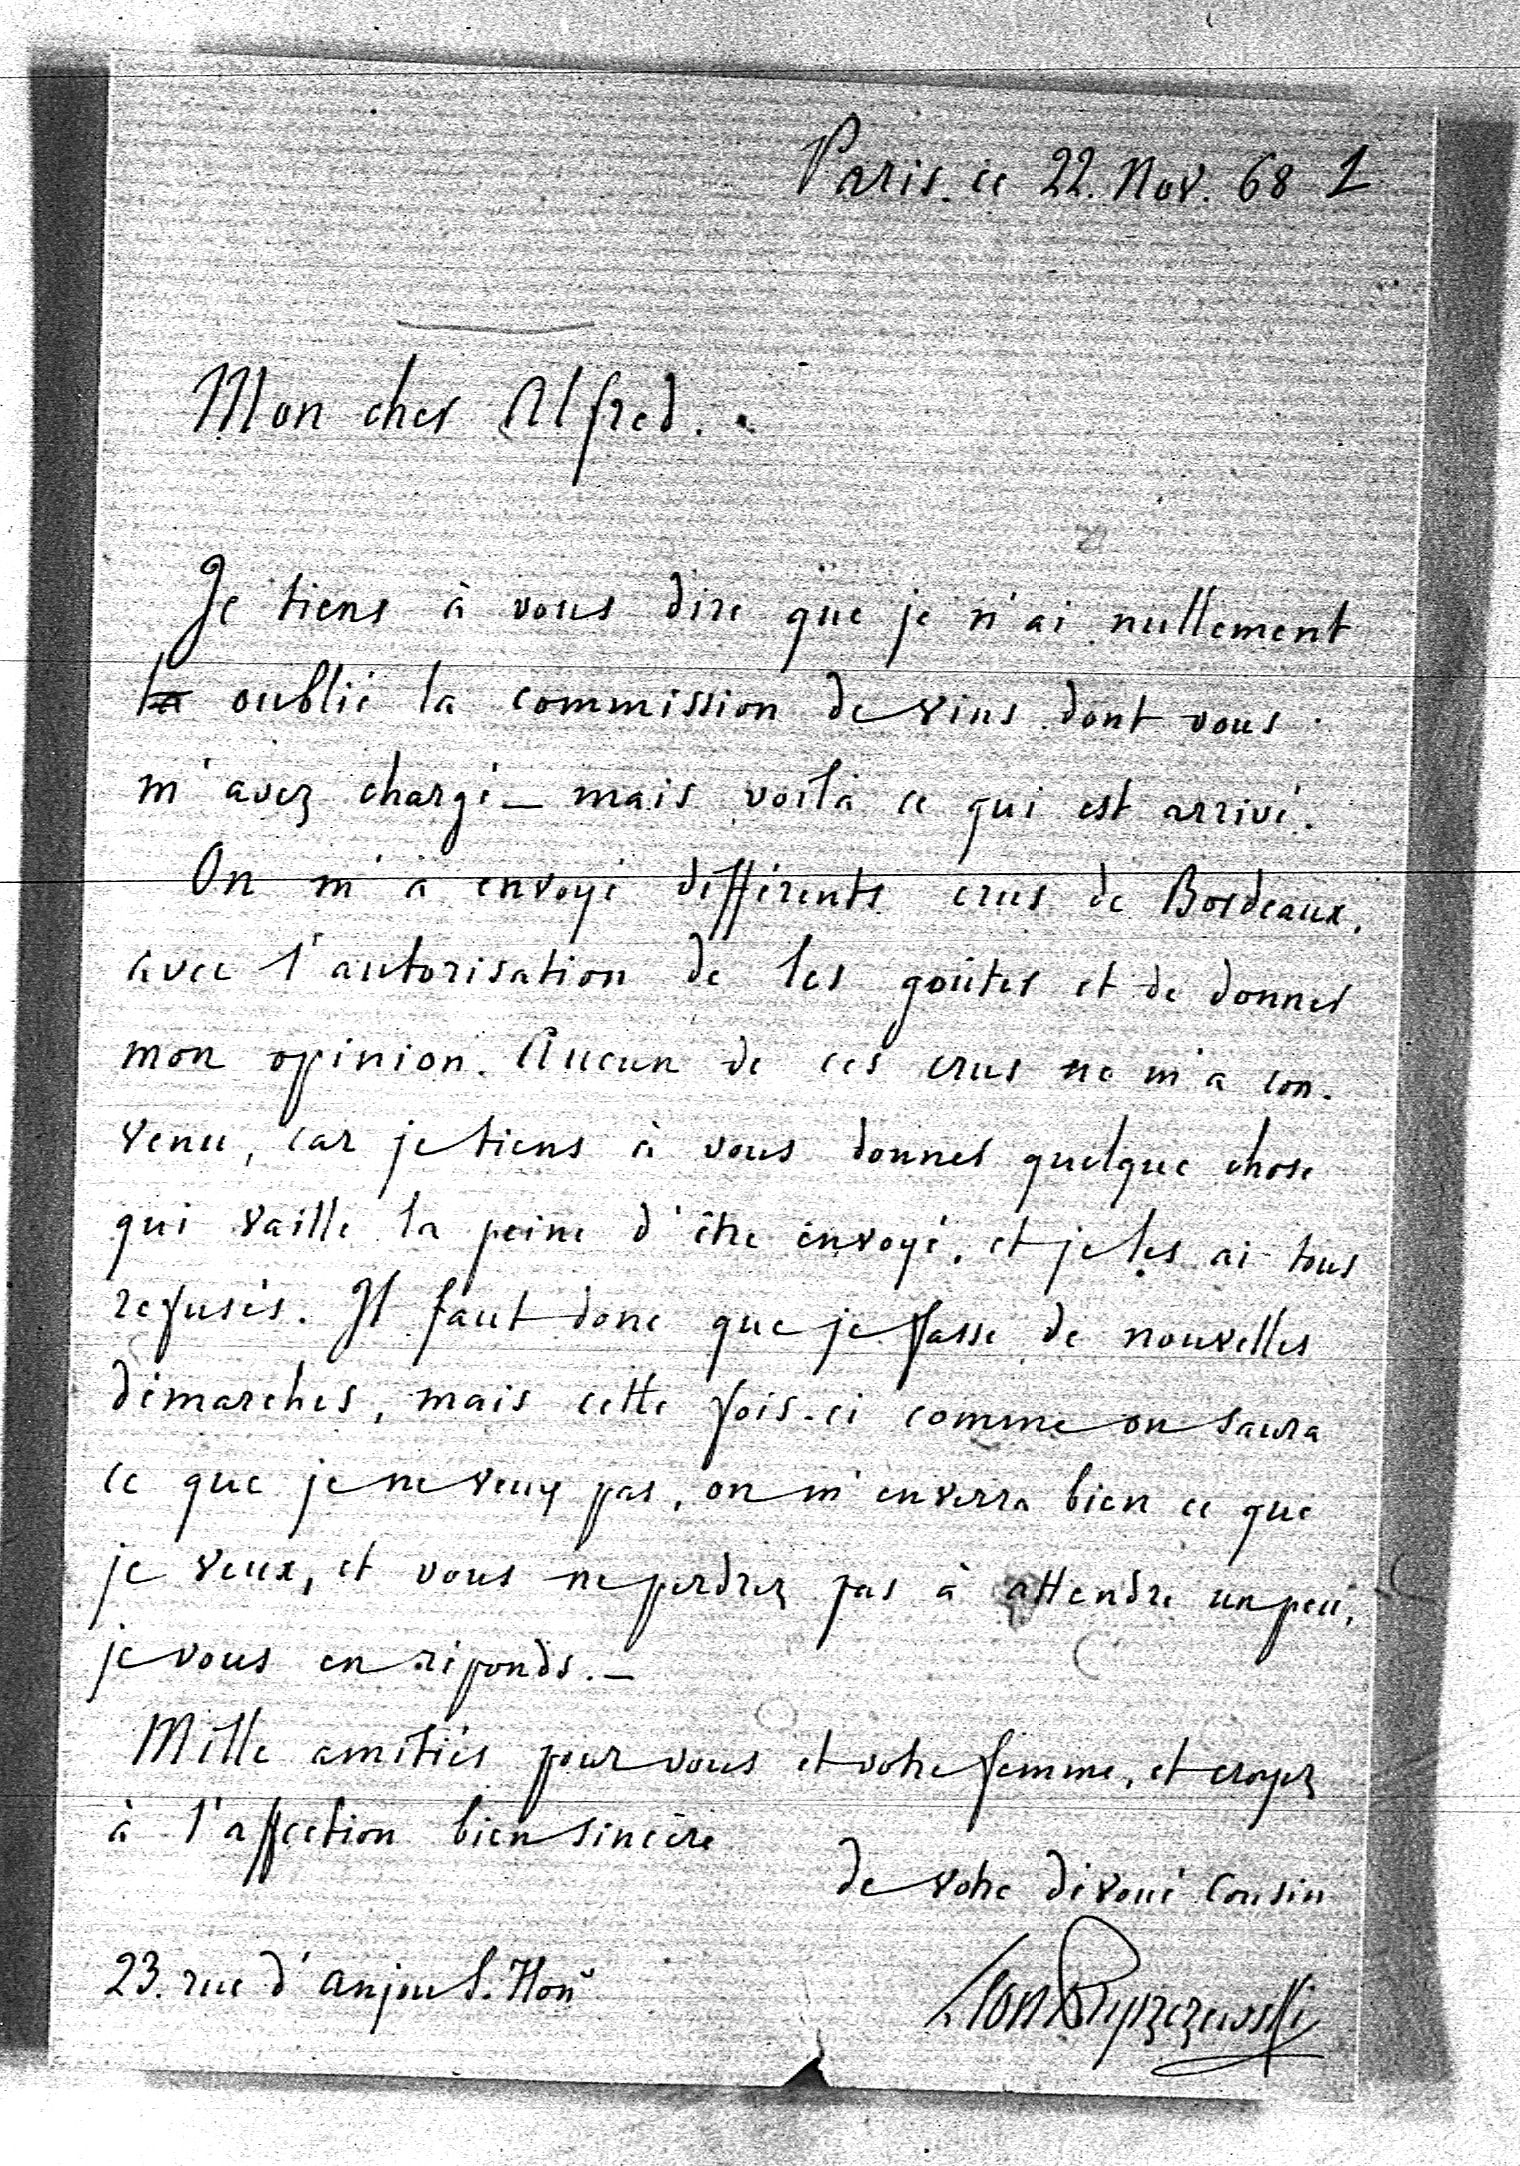 Paris. ce 22. Nov. 68 1
Mon cher Alfred.
Je tiens à vous dire que je n'ai nullement
oublié la commission de vins dont vous
m'avez chargé_ mais voilà ce qui est arrivé.
On m'a envoyé différents crus de Bordeaux,
avec l'autorisation de les goûter et de donner
mon opinion. Aucun de ces crus ne m'a con-
venu, car je tiens à vous donner quelque chose
qui vaille la peine d'être envoyé, et je les ai tous
refusés. Il faut donc que je fasse de nouvelles
démarches, mais cette fois-ci comme on saura
ce que je ne veux pas, on m'enverra bien ce que
je veux, et vous ne perdrez pas à attendre un peu,
je vous en réponds._
Mille amitiés pour vous et votre femme, et croyez
à l'affection bien sincère
de votre dévoué cousin
23. rue d'anjou S. Hon